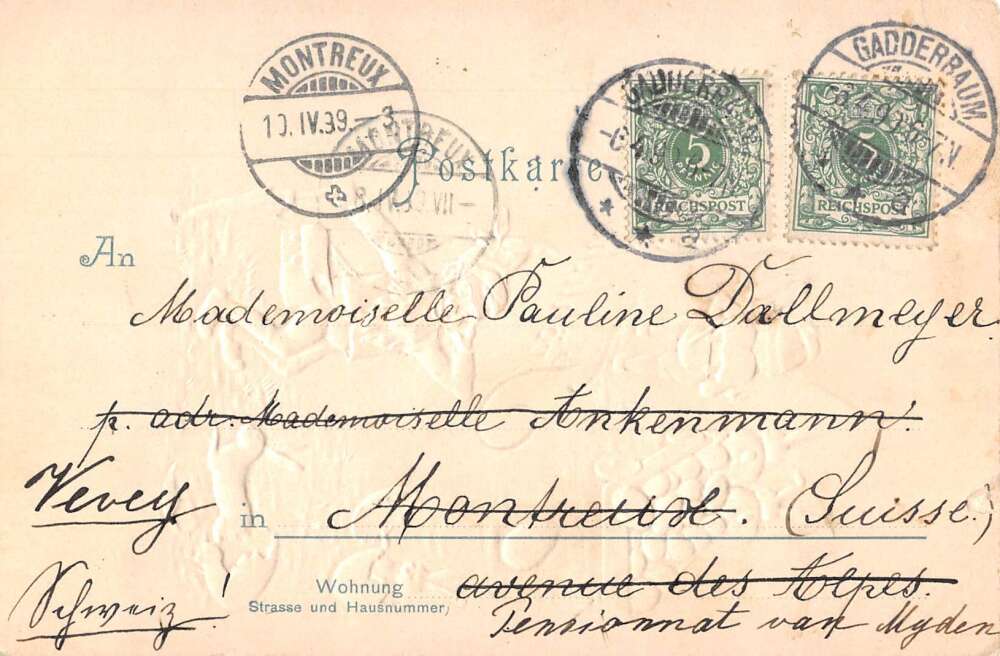 MONTREUX
10. IV.39. - 3
MONTREUX
VII -
GADDERBAUM
GADDERBAUM
5
REICHSPOST
5
REICHSPOST
Postkarte
An
Mademoiselle Pauline Dallmeyer
p. adr. Mademoiselle Ankenmann.
Vevey in Montreux. (Suisse.)
Schweiz! Wohnung avenue des Alpes.
Strasse und Hausnummer
Pensionnat van Myden